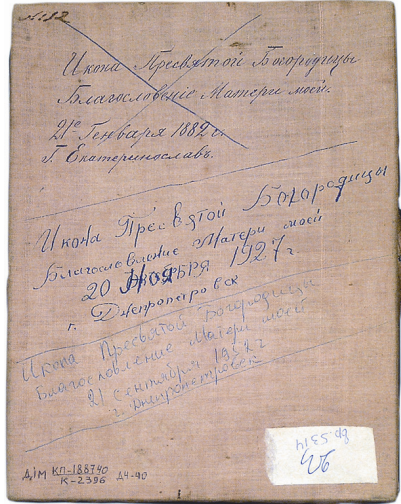 Икона Пресвятой Богородицы
Благословеніе Матери моей.
21го Генваря 1882 г.
Г. Екатеринославъ.
Икона Пресвятой Богородицы
Благословление Матери моей
20 Ноября 1927 г.
г. Днепропетровск
Икона Пресвятой Богородицы
Благословление Матери моей
21 сентября
г. Днепропетровск
ДІМ КП-188740
К-2396 Д4-40